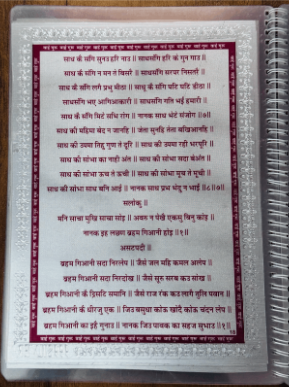 साध कै संगि सुनउ हरि नाउ ॥ साधसंगि हरि के गुन गाउ ॥
साध कै संगि न मन ते बिसरै ॥ साधसंगि सरपर निसतरै ॥
साध कै संगि लगै प्रभु मीठा ॥ साधू कै संगि घटि घटि डीठा ॥
साधसंगि भए आगिआकारी ॥ साधसंगि गति भई हमारी ॥
साध कै संगि मिटे सभि रोग ॥ नानक साध भेटे संजोग ॥७॥
साध की महिमा बेद न जानहि ॥ जेता सुनहि तेता बखिआनहि ॥
साध की उपमा तिहु गुण ते दूरि ॥ साध की उपमा रही भरपूरि ॥
साध की सोभा का नाही अंत ॥ साध की सोभा सदा बेअंत ॥
साध की सोभा ऊच ते ऊची ॥ साध की सोभा मूच ते मूची ॥
साध की सोभा साध बनि आई ॥ नानक साध प्रभ भेदु न भाई ॥८॥७॥
सलोकु ॥
मनि साचा मुखि साचा सोइ ॥ अवरु न पेखै एकसु बिनु कोइ ॥
नानक इह लछण ब्रहम गिआनी होइ ॥१॥
असटपदी ॥
ब्रहम गिआनी सदा निरलेप ॥ जैसे जल महि कमल अलेप ॥
ब्रहम गिआनी सदा निरदोख ॥ जैसे सूरु सरब कउ सोख ॥
ब्रहम गिआनी कै द्रिसटि समानि ॥ जैसे राज रंक कउ लागै तुलि पवान ॥
ब्रहम गिआनी कै धीरजु एक ॥ जिउ बसुधा कोऊ खोदै कोऊ चंदन लेप ॥
ब्रहम गिआनी का इहै गुनाउ ॥ नानक जिउ पावक का सहज सुभाउ ॥१॥